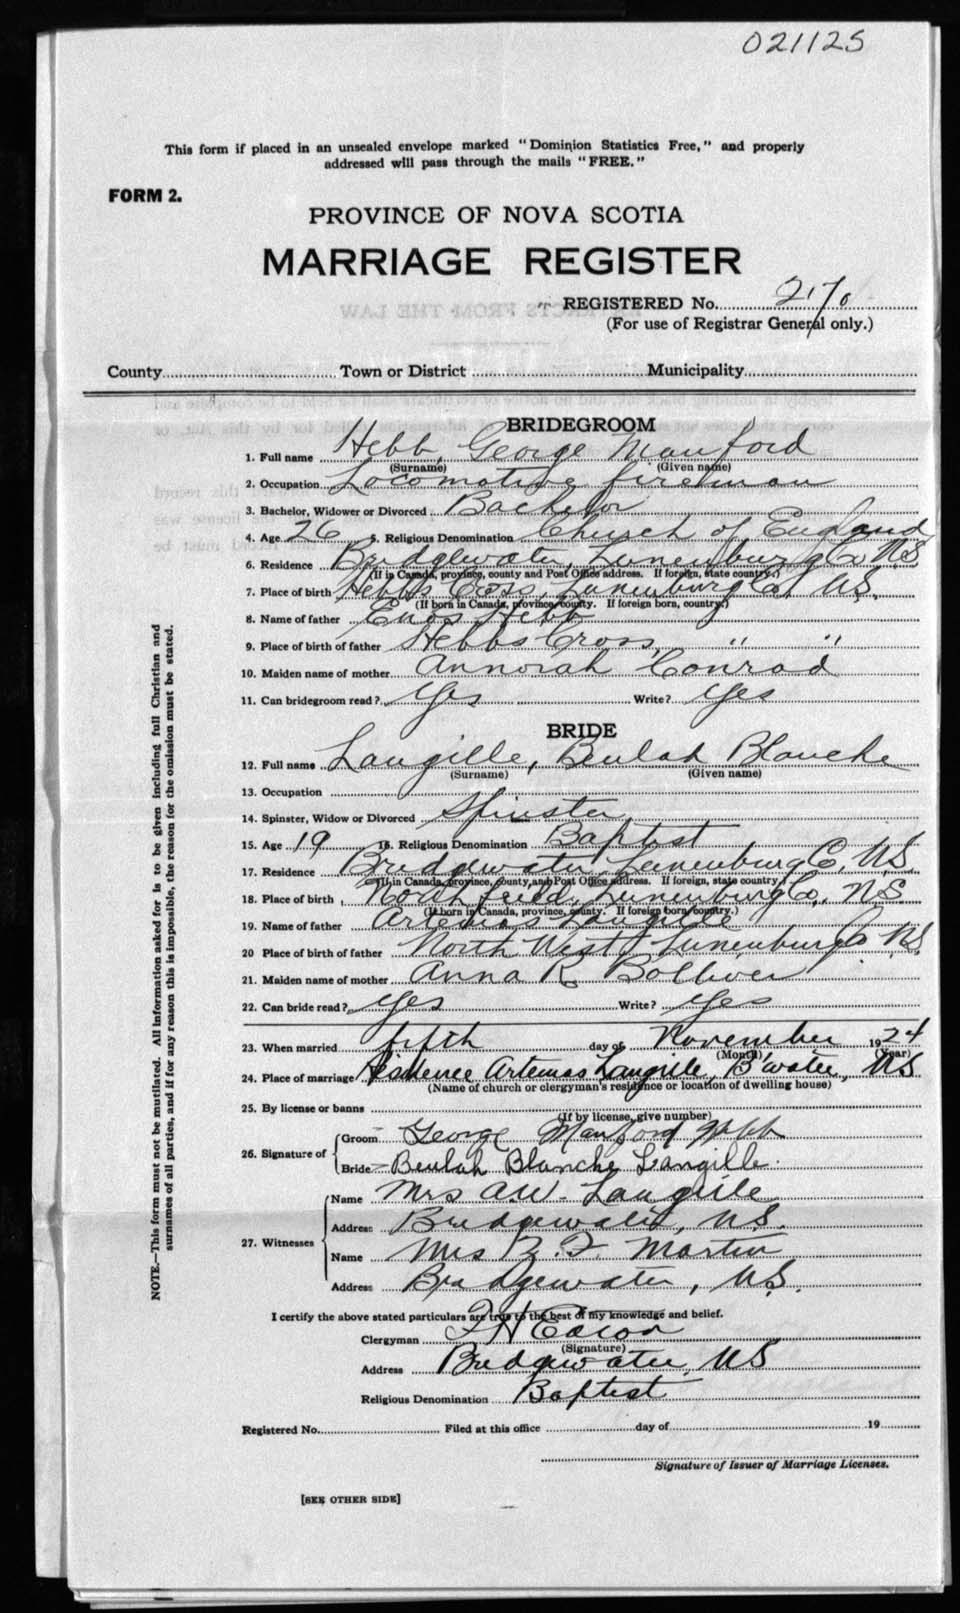 021125
This form if placed in an unsealed envelope marked "Dominion Statistics Free," and properly
addressed will pass through the mails "FREE."
FORM 2.
PROVINCE OF NOVA SCOTIA
MARRIAGE REGISTER
REGISTERED No. 2170
(For use of Registrar General only.)
County Town or District Municipality
BRIDEGROOM
1. Full name Hebb, George Manford
(Surname) (Given name)
2. Occupation Locomotive fireman
3. Bachelor, Widower or Divorced Bachelor
4. Age 26 5. Religious Denomination Church of England
6. Residence Bridgewater, Lunenburg Co. N.S.
(If in Canada, province, county and Post Office address. If foreign, state country.)
7. Place of birth Hebbs Cross, Lunenburg Co. N.S.
(If born in Canada, province, county. If foreign born, country.)
8. Name of father Enos Hebb
9. Place of birth of father Hebbs Cross, " "
10. Maiden name of mother Annorah Conrad
11. Can bridegroom read? Yes Write? Yes
BRIDE
12. Full name Langille, Beulah Blanche
(Surname) (Given name)
13. Occupation
14. Spinster, Widow or Divorced Spinster
15. Age 19 16. Religious Denomination Baptist
17. Residence Bridgewater, Lunenburg Co. N.S.
(If in Canada, province, county, and Post Office address. If foreign, state country.)
18. Place of birth Northfield, Lunenburg Co. N.S.
(If born in Canada, province, county. If foreign born, country.)
19. Name of father Artemas Langille
20 Place of birth of father North West, Lunenburg Co. N.S.
21. Maiden name of mother Anna R. Bolliver
22. Can bride read? Yes Write? Yes
23. When married fifth day of November 1924
(Month) (Year)
24. Place of marriage Residence Artemas Langille, B'water, N.S
(Name of church or clergyman's residence or location of dwelling house)
25. By license or banns
(If by license, give number)
26. Signature of Groom George Manford Hebb
Bride Beulah Blanche Langille.
27. Witnesses Name Mrs A.W. Langille
Address Bridgewater, N.S.
Name Mrs R. F. Martin
Address Bridgewater, N.S.
I certify the above stated particulars are true to the best of my knowledge and belief.
Clergyman
(Signature)
Address Bridgewater N.S
Religious Denomination Baptist
Registered No. Filed at this office day of 19
Signature of Issuer of Marriage Licenses.
[SEE OTHER SIDE]
NOTE.—This form must not be mutilated. All information asked for is to be given including full Christian and
surnames of all parties, and if for any reason this is impossible, the reason for the omission must be stated.